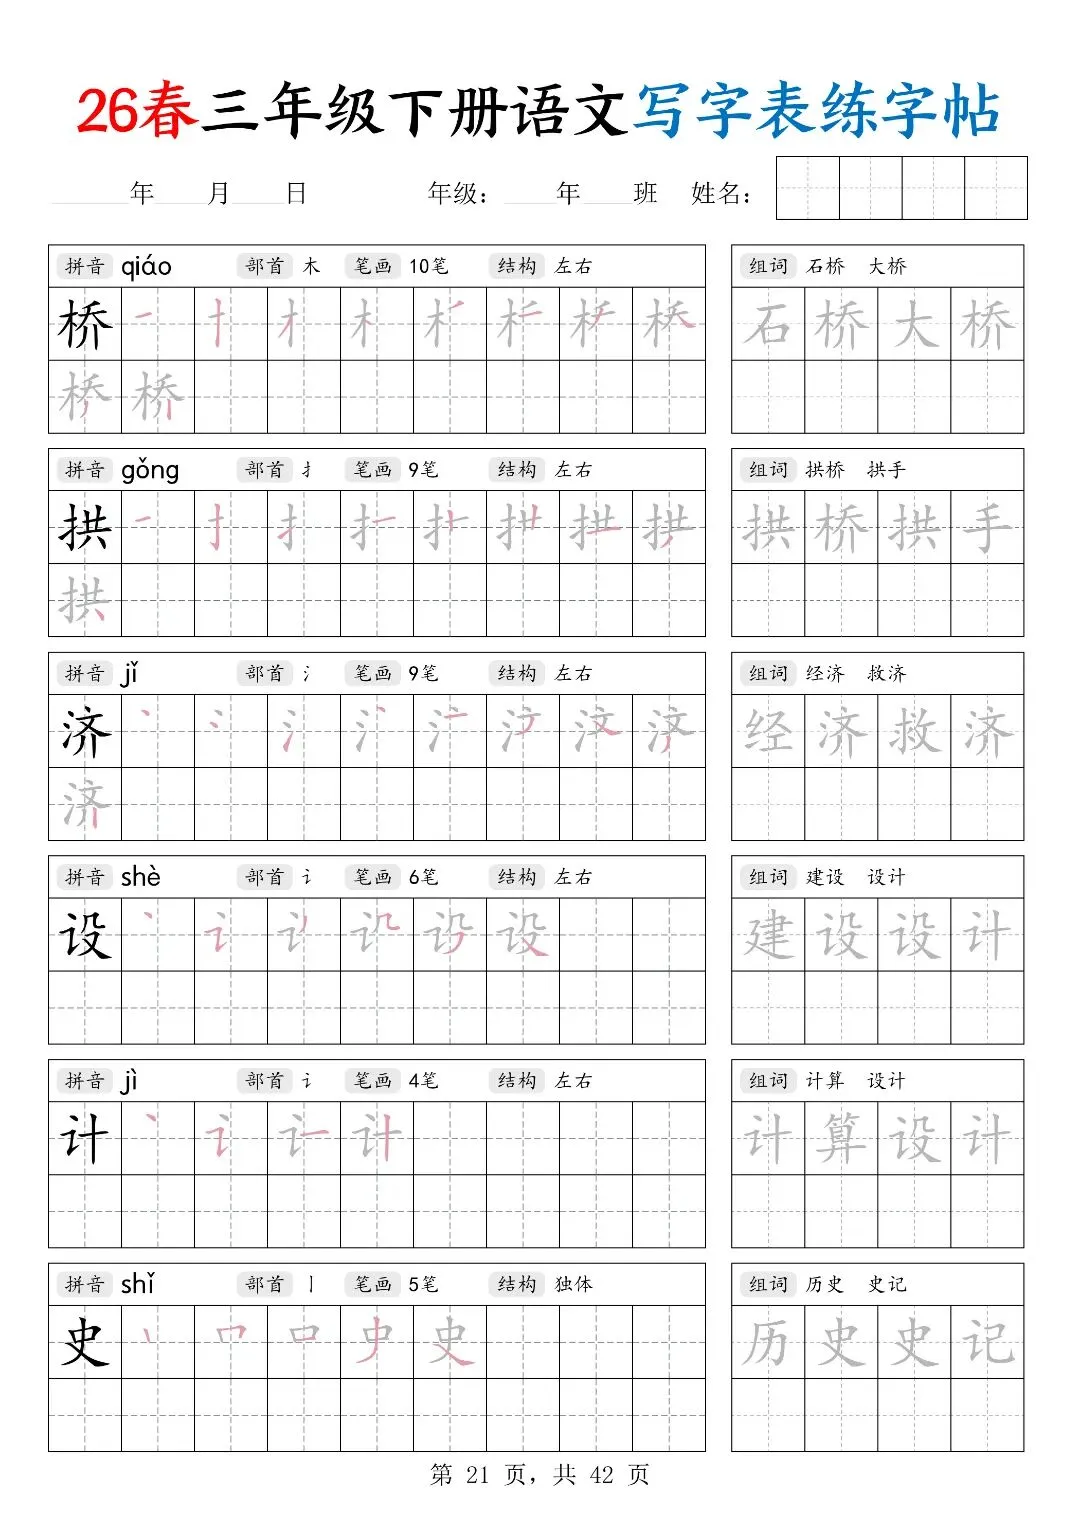 26春三年级下册语文写字表练字帖
年 月 日 年级： 年 班 姓名：
拼音 qiáo 部首 木 笔画 10笔 结构 左右
组词 石桥 大桥
桥
石桥大桥
桥桥
拼音 gǒng 部首 扌 笔画 9笔 结构 左右
组词 拱桥 拱手
拱
拱桥拱手
拱
拼音 jǐ 部首 氵 笔画 9笔 结构 左右
组词 经济 救济
济
经济救济
济
拼音 shè 部首 讠 笔画 6笔 结构 左右
组词 建设 设计
设 设
建设设计
拼音 jì 部首 讠 笔画 4笔 结构 左右
组词 计算 设计
计 计
计算设计
拼音 shǐ 部首 丨 笔画 5笔 结构 独体
组词 历史 史记
史 史
历史史记
第 21 页，共 42 页